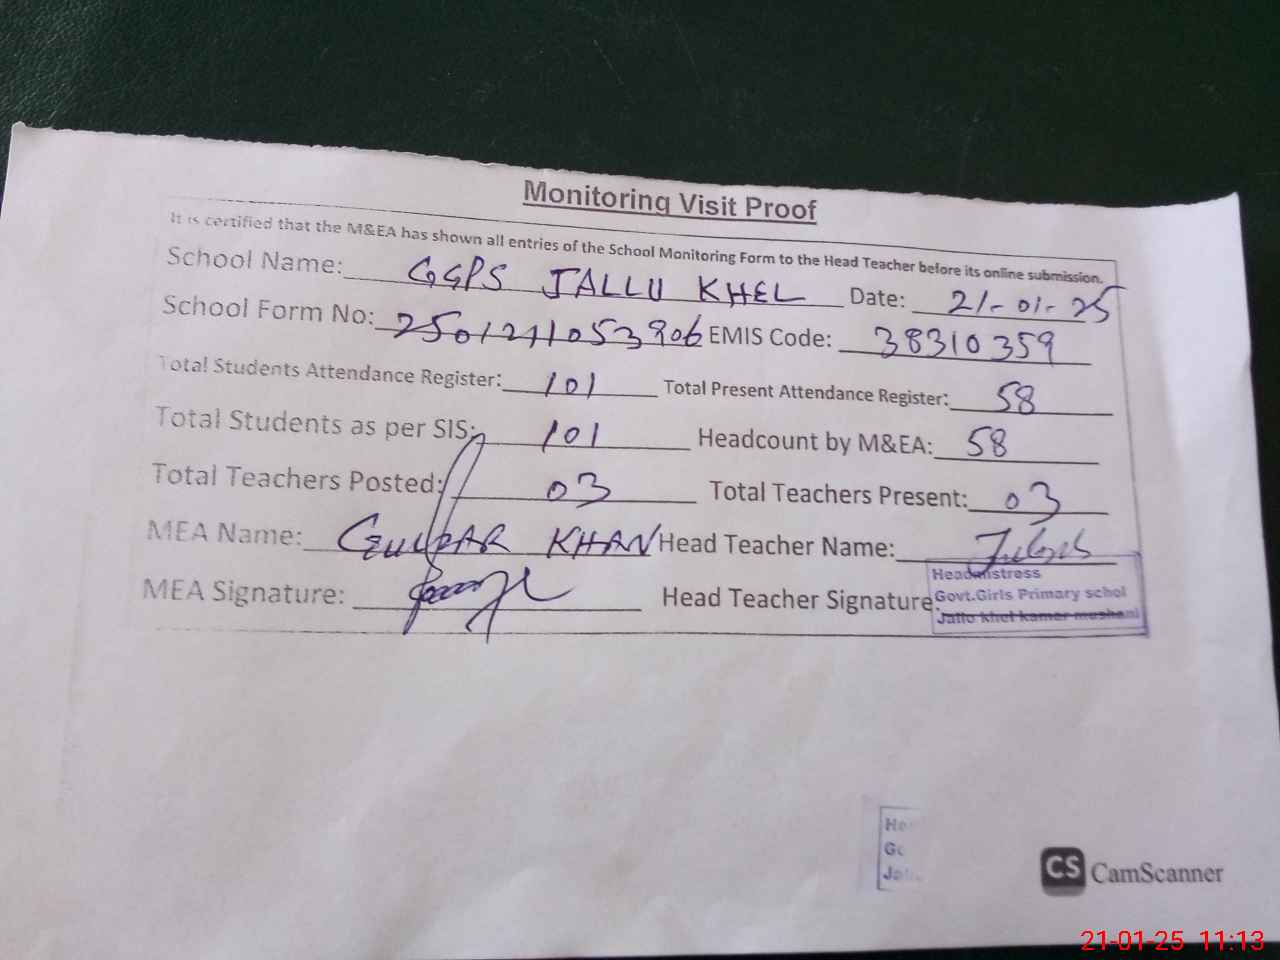 Monitoring Visit Proof
It is certified that the M&EA has shown all entries of the School Monitoring Form to the Head Teacher before its online submission.
School Name: GGPS JALLU KHEL Date: 21-01-25
School Form No: EMIS Code: 38310359
Total Students Attendance Register: 101 Total Present Attendance Register: 58
Total Students as per SIS: 101 Headcount by M&EA: 58
Total Teachers Posted: 03 Total Teachers Present: 03
MEA Name: KHAN Head Teacher Name:
MEA Signature: Head Teacher Signature:
Headmistress
Govt.Girls Primary schol
Jallu khel kamer mushani
He
Gc
CS CamScanner
21-01-25 11:13